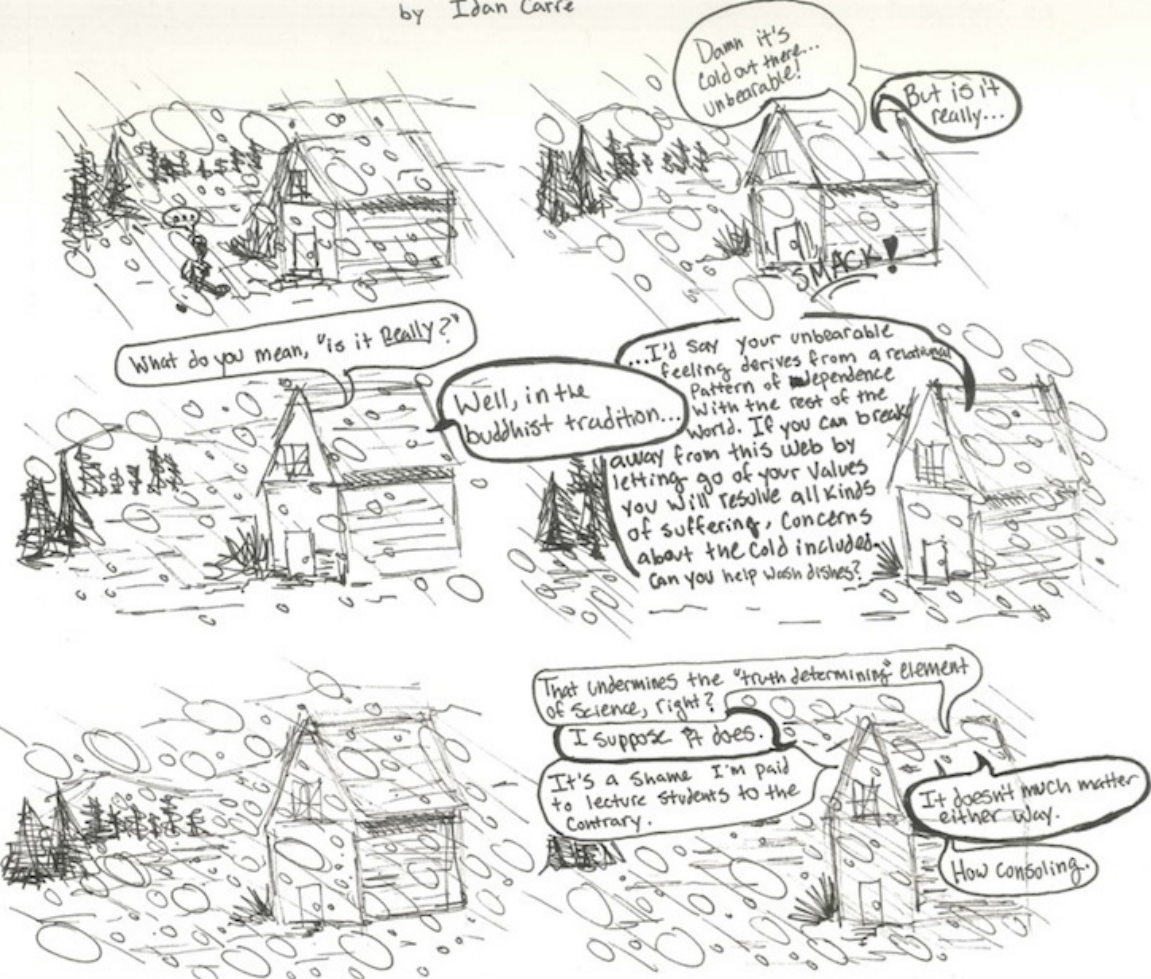 by Idan Carre
...
Damn it's
cold out there...
unbearable!
But is it
really...
SMACK!
What do you mean, "is it Really?"
Well, in the
buddhist tradition...
...I'd say your unbearable
feeling derives from a relational
Pattern of dependence
With the rest of the
World. If you can break
away from this web by
letting go of your values
you will resolve all kinds
of suffering, Concerns
about the Cold included.
Can you help wash dishes?
That undermines the "truth determining" element
of Science, right?
I suppose it does.
It's a shame I'm paid
to lecture students to the
Contrary.
It doesn't much matter
either way.
How consoling.